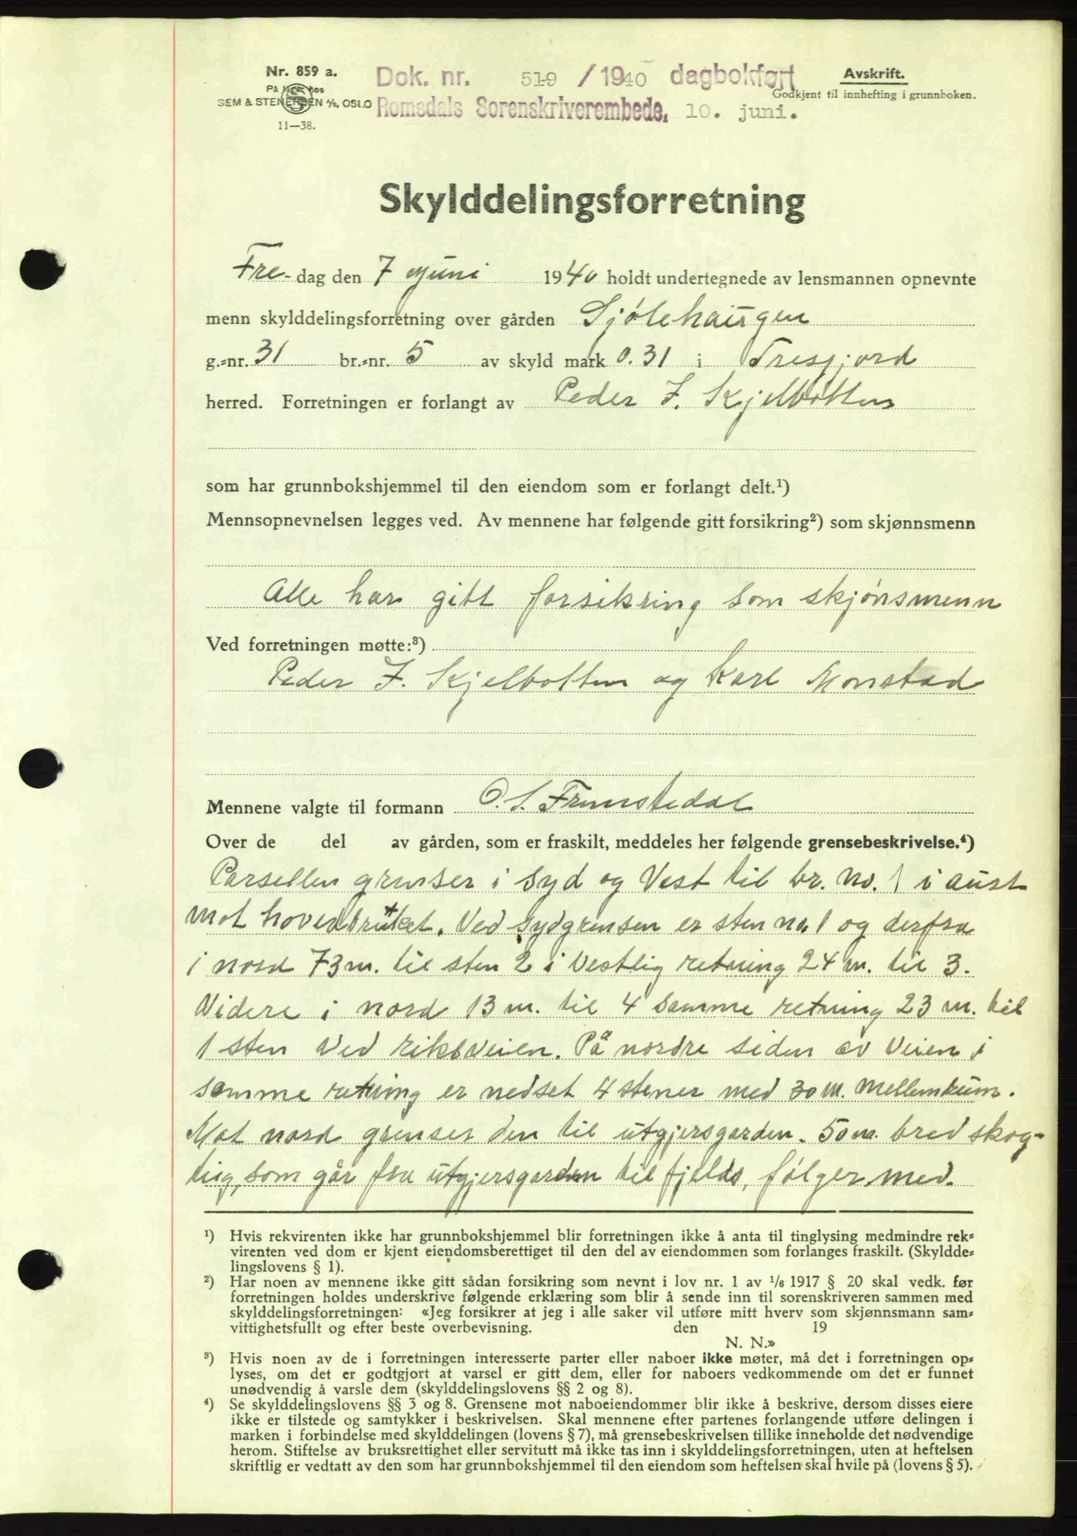 Nr. 859 a.
På lager hos
SEM & STENERSEN A/S, OSLO
11—38.
Dok. nr. 519 / 1940 dagbokført
Romsdals Sorenskriverembede, 10. juni.
Avskrift.
Godkjent til innhefting i grunnboken.
Skylddelingsforretning
Fre- dag den 7 juni 1940 holdt undertegnede av lensmannen opnevnte
menn skylddelingsforretning over gården Sjølehaugen
g.-nr. 31 br.-nr. 5 av skyld mark 0.31 i Tresfjord
herred. Forretningen er forlangt av Peder J. Kjelbotten
som har grunnbokshjemmel til den eiendom som er forlangt delt.¹)
Mennsopnevnelsen legges ved. Av mennene har følgende gitt forsikring²) som skjønnsmenn
Alle har gitt forsikring som skjønsmenn
Ved forretningen møtte:³)
Peder J. Kjelbotten og Karl Monstad
Mennene valgte til formann O. S. Fremstedal
Over de del av gården, som er fraskilt, meddeles her følgende grensebeskrivelse.⁴)
Parsellen grenser i Syd og Vest til br. no. 1 i aust
mot hovedbruket. Ved Sydgrensen er sten no 1 og derfra
i nord 73 m. til sten 2 i Vestlig retning 24 m. til 3.
Videre i nord 13 m. til 4 samme retning 23 m. til
1 sten ved riksveien. På nordre siden av Veien i
samme retning er nedset 4 stener med 30 m. mellemrum.
Mot nord grenser den til utgjersgarden. 50 m. bred skog-
teig, som går fra utgjersgarden til fjells, følger med.
¹) Hvis rekvirenten ikke har grunnbokshjemmel blir forretningen ikke å anta til tinglysing medmindre rek-
virenten ved dom er kjent eiendomsberettiget til den del av eiendommen som forlanges fraskilt. (Skyldde-
lingslovens § 1).
²) Har noen av mennene ikke gitt sådan forsikring som nevnt i lov nr. 1 av 1/6 1917 § 20 skal vedk. før
forretningen holdes underskrive følgende erklæring som blir å sende inn til sorenskriveren sammen med
skylddelingsforretningen: «Jeg forsikrer at jeg i alle saker vil utføre mitt hverv som skjønnsmann sam-
vittighetsfullt og efter beste overbevisning. den 19
N. N.»
³) Hvis noen av de i forretningen interesserte parter eller naboer ikke møter, må det i forretningen op-
lyses, om det er godtgjort at varsel er gitt dem, eller for naboers vedkommende om det er funnet
unødvendig å varsle dem (skylddelingslovens §§ 2 og 8).
⁴) Se skylddelingslovens §§ 3 og 8. Grensene mot naboeiendommer blir ikke å beskrive, dersom disses eiere
ikke er tilstede og samtykker i beskrivelsen. Skal mennene efter partenes forlangende utføre delingen i
marken i forbindelse med skylddelingen (lovens § 7), må grensebeskrivelsen tillike inneholde det nødvendige
herom. Stiftelse av bruksrettighet eller servitutt må ikke tas inn i skylddelingsforretningen, uten at heftelsen
skriftlig er vedtatt av den som har grunnbokshjemmel til den eiendom som heftelsen skal hvile på (lovens § 5).